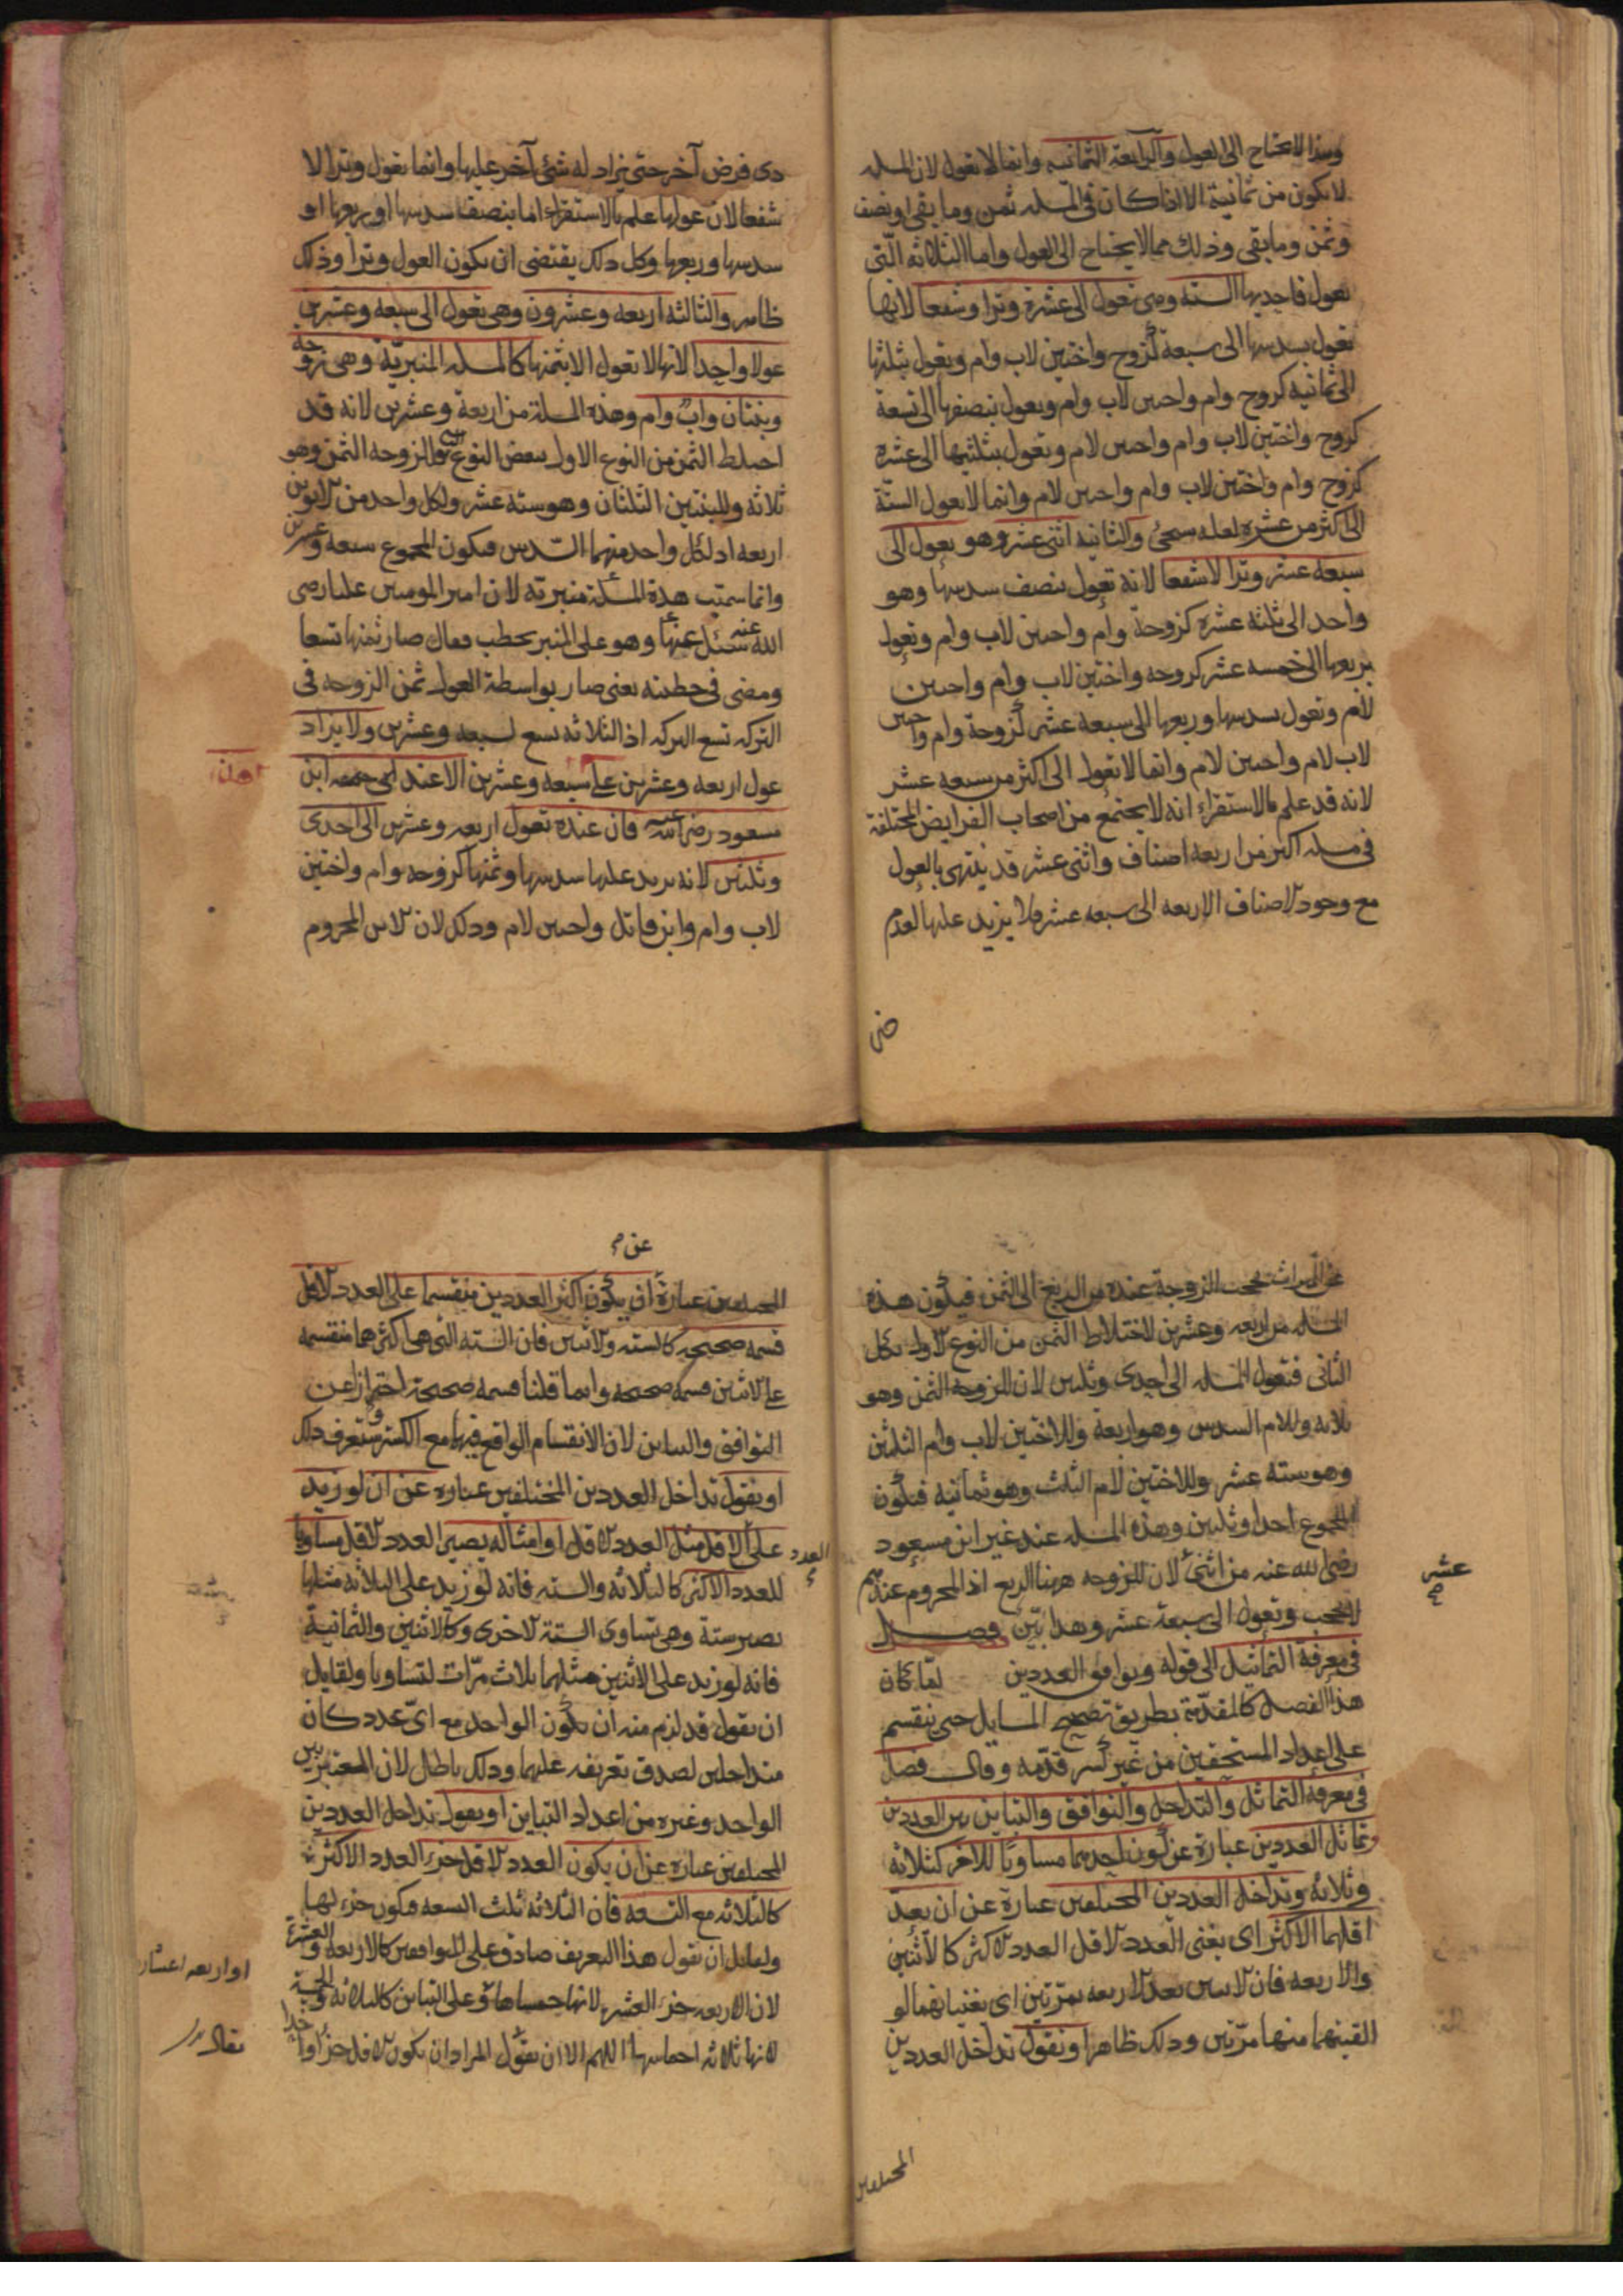 وهذا لا يحتاج الى العول والرابعة الثمانيه وانما لا تعول لان المسله
لا يكون من ثمانية الا اذا كان فى المسله ثمن وما بقى او نصف
وثمن وما بقى وذلك مما لا يحتاج الى العول واما الثلاثه التى
تعول فاحديها الستة وهى تعول الى عشرة وترا وشفعا لانها
تعول بسدسها الى سبعة كزوج واختين لاب وام وتعول بثلثها
الى ثمانيه كزوج وام واحىىن لاب وام وتعول بنصفها الى تسعة
كزوج واختين لاب وام واحىىن لام وتعول بثلثيها الى عشره
كزوج وام واختين لاب وام واحىىن لام وانما لا تعول الستة
الى اكثر من عشره لعله سىجئ والثانيه اثنى عشر وهو يعول الى
سبعه عشر وترا لا شفعا لانه تعول بنصف سدسها وهو
واحد الى ثلثه عشره كزوجة وام واحىىن لاب وام وتعول
بربعها الى خمسه عشر كزوجه واختين لاب وام واحىىن
لام وتعول بسدسها وربعها الى سبعه عشر كزوجة وام واحىىن
لاب لام واحىىن لام وانما لا تعول الى اكثر من سبعه عشر
لانه قد علم بالاستقراء انه لا يجتمع من اصحاب الفرايض المختلفة
فى مسله اكثر من اربعه اصناف واثنى عشر قد ينتهى بالعول
مع وجود الاصناف الاربعه الى سبعه عشر فلا يزيد عليها لعدم
ض
دى فرض آخر حتى يزاد له شئ آخر عليها وانما تعول وترا لا
شفعا لان عولها علم بالاستقراء اما بنصف سدسها او ربعها او
سدسها وربعها وكل ذلك يقتضى ان يكون العول وترا وذلك
ظاهر والثالثه اربعه وعشرون وهى تعول الى سبعه وعشرين
عولا واحدا لانها لا تعول الا بثمنها كالمسله المنبرية وهى زوجة
وبنتان واب وام وهذه المسلة من اربعة وعشرين لانه قد
اختلط الثمن من النوع الاول ببعض النوع والزوجه الثمن وهو
ثلاثه وللبنتين الثلثان وهو سته عشر ولكل واحد من الابوين
اربعه اذ لكل واحد منهما السدس فيكون المجموع سبعه وعشرين
وانما سميت هذة المسئلة منبرية لان امير المومنين عليا رضى
الله عنه سئل عنها وهو على المنبر يخطب فقال صار ثمنها تسعا
ومضى فى خطبته يعنى صار بواسطة العول ثمن الزوجه فى
التركه تسع التركه اذ الثلاثه تسع لسبعه وعشرين ولا يزاد
عول اربعه وعشرين على سبعه وعشرين الا عند ابن
مسعود رضى الله عنه فان عنده تعول اربعه وعشرين الى احدى
وثلثين لانه يزيد عليها سدسها وثمنها كزوجه وام واختين
لاب وام وابن قاتل واحىىن لام وذلك لان الابن المحروم
عن الميراث يحجب الزوجة عنده من الربع الى الثمن فيكون هذه
المسله من اربعه وعشرين لاختلاط الثمن من النوع الاول بكل
الثانى فتعول المسله الى احدى وثلثين لان للزوجه الثمن وهو
ثلاثه وللام السدس وهو اربعة وللاختين لاب وام الثلثين
وهو سته عشر وللاختين لام الثلث وهو ثمانيه فيكون
المجموع احدا وثلثين وهذه المسله عند غير ابن مسعود
رضى الله عنه من اثنى لان للزوجه ههنا الربع اذ المحروم عندهم
عشر
صح
لا يحجب وتعول الى سبعة عشر وهذا بيّن فصل
فى معرفة التماثل الى قوله وتوافق العددين لما كان
هذا الفصل كالمقدمة بطريق تصحيح المسايل حتى ينقسم
على اعداد المستحقين من غير كسر قدّمه وقال فصل
فى معرفة التماثل والتداخل والتوافق والتباين بين العددين
وتماثل العددين عبارة عن كون احدهما مساويا للآخر كثلاثه
وثلاثه وتداخل العددين المختلفين عبارة عن ان يعد
اقلهما الاكثر اى يفنى العدد الاقل العدد الاكثر كالاثنين
والاربعه فان الاثنين يعد الاربعه بمرتين اى يفنيانهما لو
القيتهما منهما مرتين وذلك ظاهر او نقول تداخل العددين
المختلفين
عن صح
المختلفين عبارة ان يكون اكثر العددين منقسما على العدد الاقل
قسمه صحيحه كالسته والاثنين فان السته التى هى اكثرهما منقسمه
على الاثنين قسمة صحيحه وانما قلنا قسمه صحيحة احترازا عن
التوافق والتباين لان الانقسام الواقع فيهما مع الكسر وستعرف ذلك
او نقول تداخل العددين المختلفين عباره عن ان لو زيد
على الاقل مثل العدد الاقل او امثاله يصير العدد الاقل مساويا
العدد
للعدد الاكثر كالثلاثه والسته فانه لو زيد على الثلاثه مثلها
تصير ستة وهى تساوى الستة الاخرى وكالاثنين والثمانية
فانه لو زيد على الاثنين مثلهما ثلاث مرّات لتساويا ولقايل
ان يقول قد لزم منه ان يكون الواحد مع اىّ عدد كان
متداخلين لصدق تعريفه عليهما وذلك باطل لان المعتبر بين
الواحد وغيره من اعداد التباين او نقول تداخل العددين
المختلفين عباره عن ان يكون العدد الاقل جزء العدد الاكثر
كالثلاثه مع التسعه فان الثلاثه ثلث التسعه فيكون جزء لها
ولقايل ان يقول هذا التعريف صادق على المتوافقين كالاربعه والعشرة
او اربعه اعشار
لان الاربعه جزء العشره لانها خمساها وعلى التباين كالثلاثه والخمسة
لانها ثلاثه اخماسها اللهم الا ان نقول المراد ان يكون الاقل جزءا واحدا